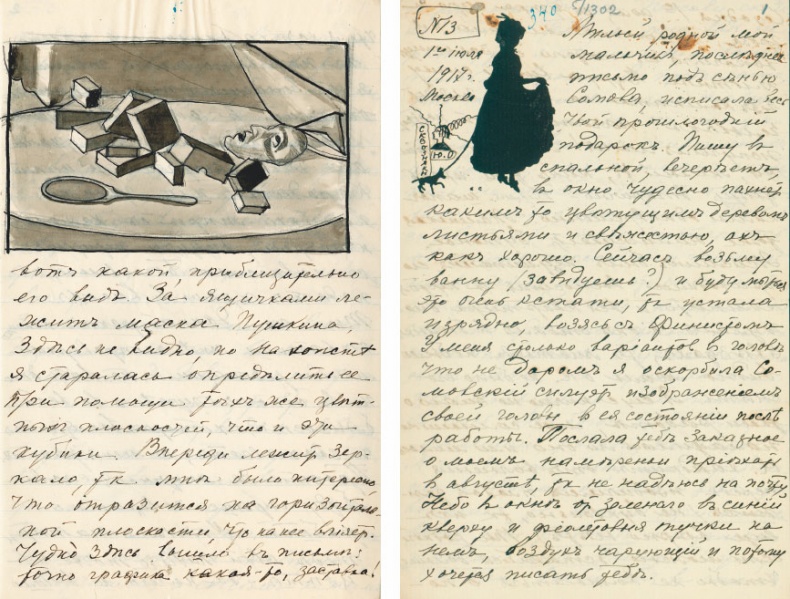 вотъ какой, приблизительно
его видъ. За ящичками ле-
житъ маска Пушкина,
Здѣсь не видно, но на холстѣ
я старалась опредѣлить ее
при помощи тѣхъ же цвѣт-
ныхъ плоскостей, что и эти
кубики. Впереди лежит зер-
кало, тк мнѣ было интересно
что отразится на горизонталь-
ной плоскости,
Чудно здѣсь вышло въ письмѣ:
точно графика какая-то, заставка!
N 13
1го іюля
1917 г.
Москва
340 6/1302
1
родной мой
мальчикъ, послѣднее
письмо подъ сѣнью
Сомова, исписала весь
Твой прошлогодній
подарокъ. Пишу въ
спальной, вечерѣетъ,
въ окно чудесно пахнетъ
какимъ то цвѣтущимъ деревомъ
листьями и свѣжестью, ахъ
какъ хорошо. Сейчасъ возьму
ванну (завидуешь?) и буду
это очень кстати, тк устала
изрядно, возясь съ Финистомъ
У меня столько варіантов в головѣ
что не даромъ я оскорбила Со-
мовскій силуэт изображеніемъ
своей головы в ея состояніи послѣ
работы. Послала тебѣ заказное
о моемъ намѣреніи пріѣхать
в августѣ, тк не надѣюсь на почту
Небо в окнѣ от зеленаго в синій
кверху и фіолетовыя тучки на
немъ, воздухъ чарующій и потому
хочется писать тебѣ.